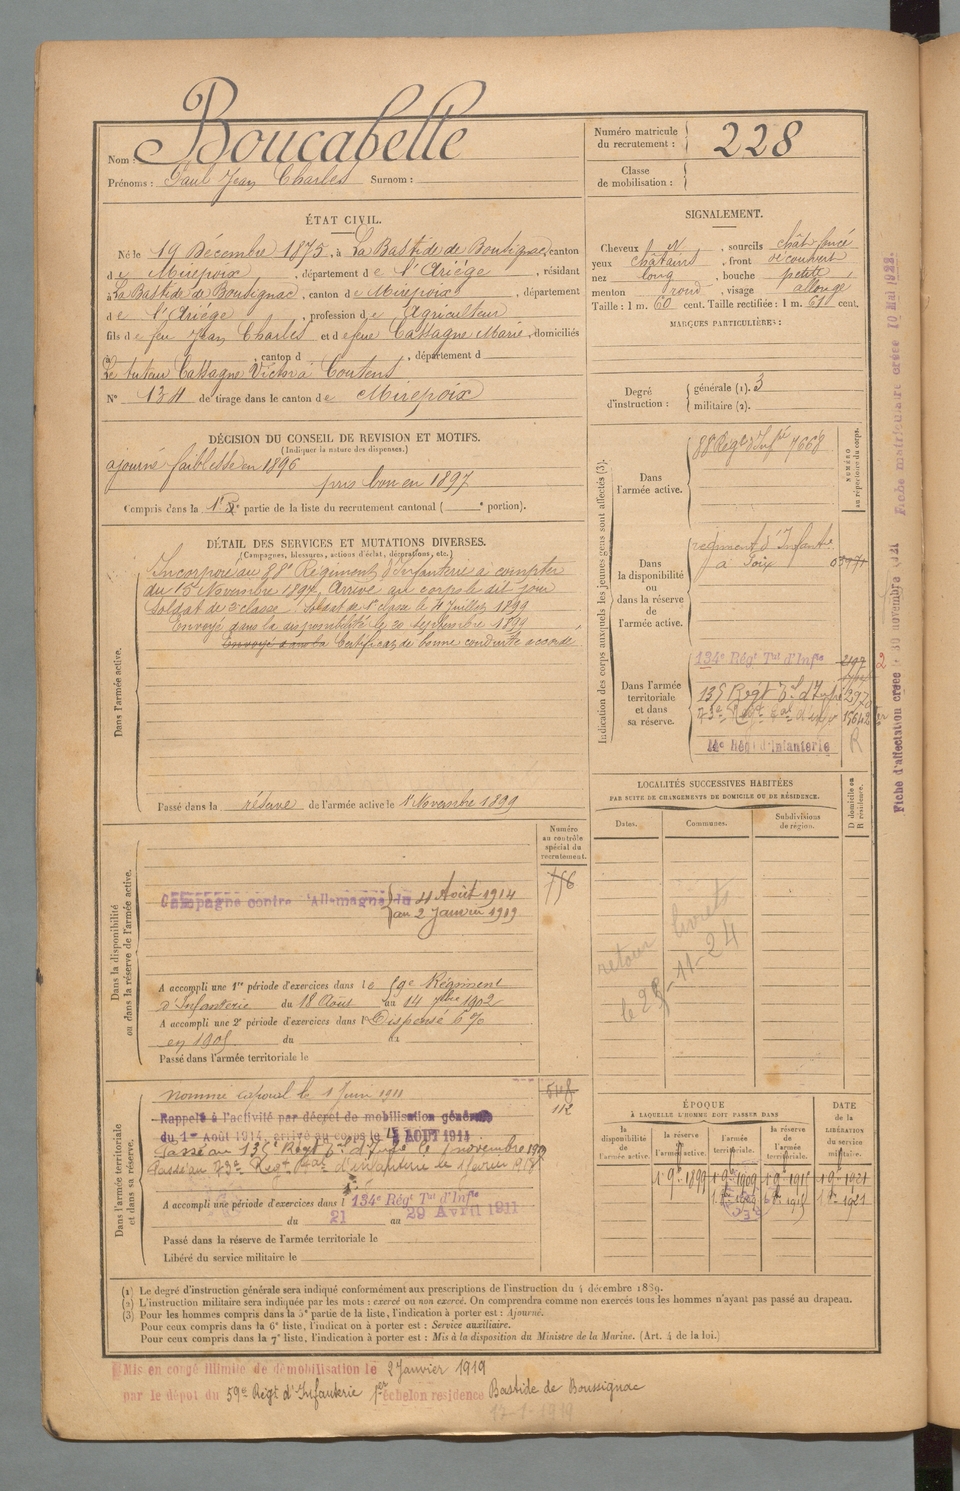 Nom : Boucabelle
Prénoms : Paul Jean Charles Surnom :
Numéro matricule du recrutement : 228
Classe de mobilisation :
ÉTAT CIVIL.
Né le 19 Décembre 1875, à La Bastide de Bousignac, canton
de Mirepoix, département de l'Ariége, résidant
à La Bastide de Bousignac, canton de Mirepoix, département
de l'Ariége, profession de Agriculteur
fils de feu Jean Charles et de feue Cassagne Marie, domiciliés
, canton d , département d
Le tuteur Cassagne Victor à Coutens
N° 134 de tirage dans le canton de Mirepoix
SIGNALEMENT.
Cheveux , sourcils chât foncé
yeux châtains, front découvert
nez long, bouche petite
menton rond, visage allongé
Taille : 1 m. 60 cent. Taille rectifiée : 1 m. 61 cent.
MARQUES PARTICULIÈRES :
Degré d'instruction :
générale (1). 3
militaire (2).
DÉCISION DU CONSEIL DE REVISION ET MOTIFS.
(Indiquer la nature des dispenses.)
ajourné faiblesse en 1896
pris bon en 1897
Compris dans la 1re partie de la liste du recrutement cantonal ( e portion).
DÉTAIL DES SERVICES ET MUTATIONS DIVERSES.
(Campagnes, blessures, actions d'éclat, décorations, etc.)
Dans l'armée active.
Incorporé au 88e Régiment d'Infanterie à compter
du 15 Novembre 1897, Arrivé au corps le dit jour
Soldat de 2e classe. Soldat de 1e classe le Juillet 1899
Envoyé dans la disponibilité le 20 septembre 1899
Envoyé dans la Certificat de bonne conduite accordé
Passé dans la réserve de l'armée active le 1 Novembre 1899
Indication des corps auxquels les jeunes gens sont affectés (3).
NUMÉRO au répertoire du corps.
Dans l'armée active.
88 Régt d'Infie 7668
Dans la disponibilité ou dans la réserve de l'armée active.
régiment d'Infantie
à Foix
Dans l'armée territoriale et dans sa réserve.
134e Régt Tal d'Infie
135 Régt Tal d'Infie
14e Régt d'Infanterie R
LOCALITÉS SUCCESSIVES HABITÉES
PAR SUITE DE CHANGEMENTS DE DOMICILE OU DE RÉSIDENCE.
Dates. Communes. Subdivisions de région. D domicile ou R résidence.
retour livrets
le 29-11-24
Numéro au contrôle spécial du recrutement.
Dans la disponibilité ou dans la réserve de l'armée active.
Campagne contre l'Allemagne du 4 Août 1914
au 2 Janvier 1919
A accompli une 1re période d'exercices dans le 59e Régiment
d'Infanterie du 18 Août au 14 7bre 1902
A accompli une 2e période d'exercices dans l Dispensé 6 %
en 1905 du au
Passé dans l'armée territoriale le
Dans l'armée territoriale et dans sa réserve.
nommé caporal le 1 Juin 1911
112
Rappelé à l'activité par décret de mobilisation générale
du 1er Août 1914, arrivé au corps le 4 AOUT 1914
Passé au 135e Régt Tal d'Infie le 1 novembre
Passé au 73e Régt Tal d'infanterie le 1 février
A accompli une période d'exercices dans l 134e Régt Tal d'Infie
du 21 au 29 Avril 1911
Passé dans la réserve de l'armée territoriale le
Libéré du service militaire le
ÉPOQUE
À LAQUELLE L'HOMME DOIT PASSER DANS
la disponibilité de l'armée active.
la réserve de l'armée active.
l'armée territoriale.
la réserve de l'armée territoriale.
DATE de la LIBÉRATION du service militaire.
(1) Le degré d'instruction générale sera indiqué conformément aux prescriptions de l'instruction du 4 décembre 1889.
(2) L'instruction militaire sera indiquée par les mots : exercé ou non exercé. On comprendra comme non exercés tous les hommes n'ayant pas passé au drapeau.
(3) Pour les hommes compris dans la 5e partie de la liste, l'indication à porter est : Ajourné.
Pour ceux compris dans la 6e liste, l'indication à porter est : Service auxiliaire.
Pour ceux compris dans la 7e liste, l'indication à porter est : Mis à la disposition du Ministre de la Marine. (Art. 4 de la loi.)
Mis en congé illimité de démobilisation le 2 Janvier 1919
par le dépôt du 59e Régt d'Infanterie 1er échelon résidence Bastide de Boussignac
17-1-1919
Fiche d'affectation créée le 30 novembre
Fiche matriculaire créée 10 Mai